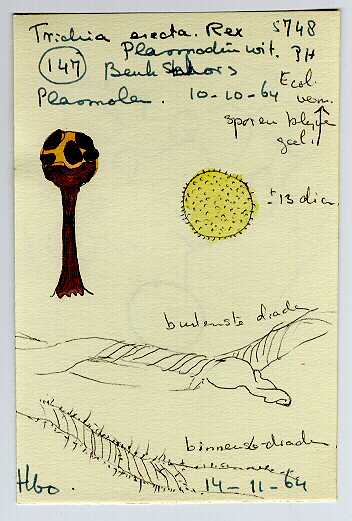 Trichia erecta. Rex 5748
Plasmodiu wit. PH
147 Beuk Schors
Plasmolen. 10-10-64 Ecol.
verm.
sporen blyve
geel.
± 13 dia.
buitenste draden
binnenste draden
Hbo. 14-11-64